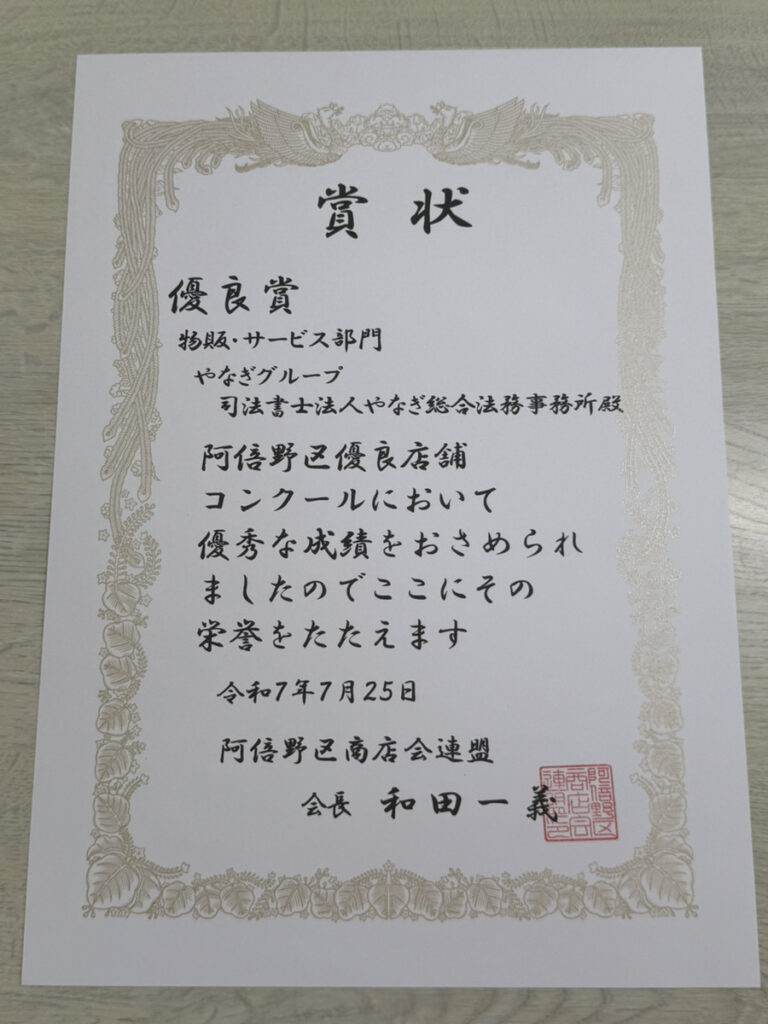 賞状
優良賞
物販・サービス部門
やなぎグループ
司法書士法人やなぎ総合法務事務所殿
阿倍野区優良店舗
コンクールにおいて
優秀な成績をおさめられ
ましたのでここにその
栄誉をたたえます
令和7年7月25日
阿倍野区商店会連盟
会長 和田一義
阿倍野区
商店会
連盟之印